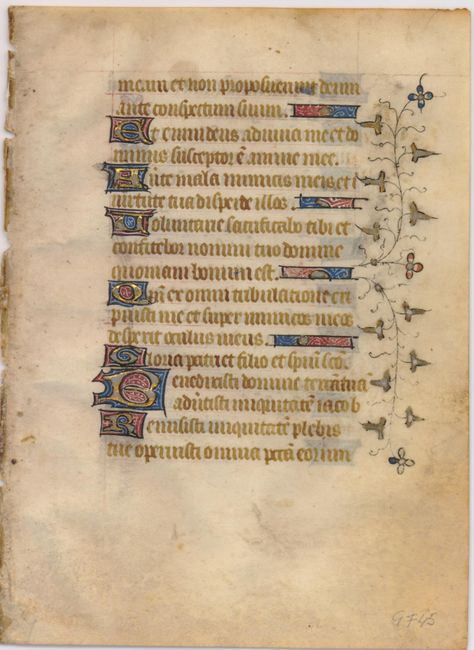 meam et non proposuerunt deum
ante conspectum suum.
Ecce enim deus adiuva me et do
minus susceptor ē anime mee.
Auerte mala inimicis meis et i
uirtute tua disperde illos.
Uoluntarie sacrificabo tibi et
confitebor nomini tuo domine
quoniam bonum est.
Qm̄ ex omni tribulatione eri
puisti me et super inimicos meos
despexit oculus meus.
Gloria patri et filio et spiui scō.
Benedixisti domine terram tuā
aduertisti iniquitatē iacob
Remisisti iniquitatē plebis
tue operuisti omnia pctā eorum
G F45